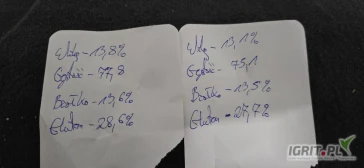 Wilg - 13,8%
Gęstość - 77,8
Białko - 13,6%
Gluten - 28,6%
Wilg - 13,1%
Gęstość - 75,1
Białko - 13,5%
Gluten - 27,7%
IGRIT.PL